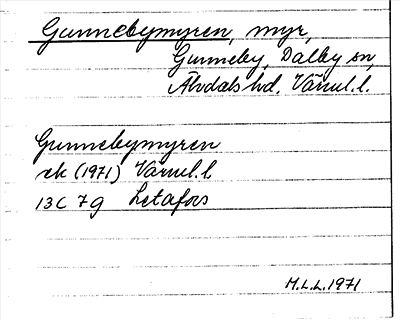 Gunnebymyren, myr,
Gunneby, Dalby sn,
Älvdals hd, Värml.l.
Gunnebymyren
ek (1971) Värml.l
13C 7g Letafors
M.L.L. 1971